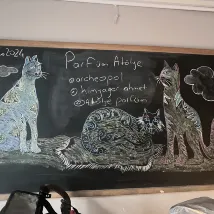 2024
Parfüm Atölye
@archespol
@kimyager ahmet
@atölye parfüm